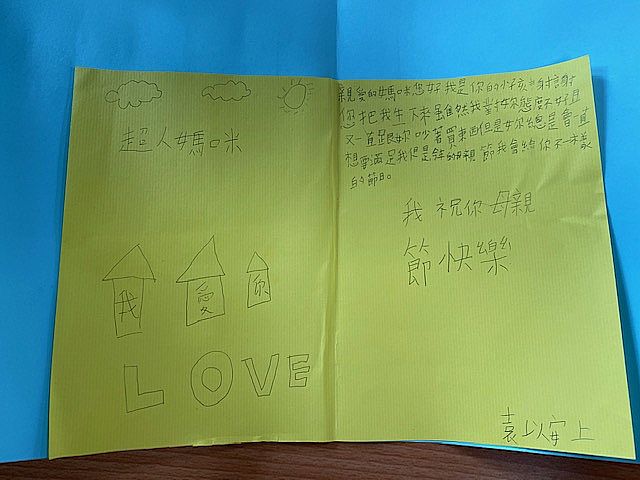 超人媽咪
我
愛
你
LOVE
親愛的媽咪您好我是你的小孩謝謝
您把我生下來雖然我對妳態度不好且
又一直跟妳吵著買東西但是妳總是會直
想要滿足我但是母親節我會給你不一樣
的節日。
我祝你母親
節快樂
袁以安上